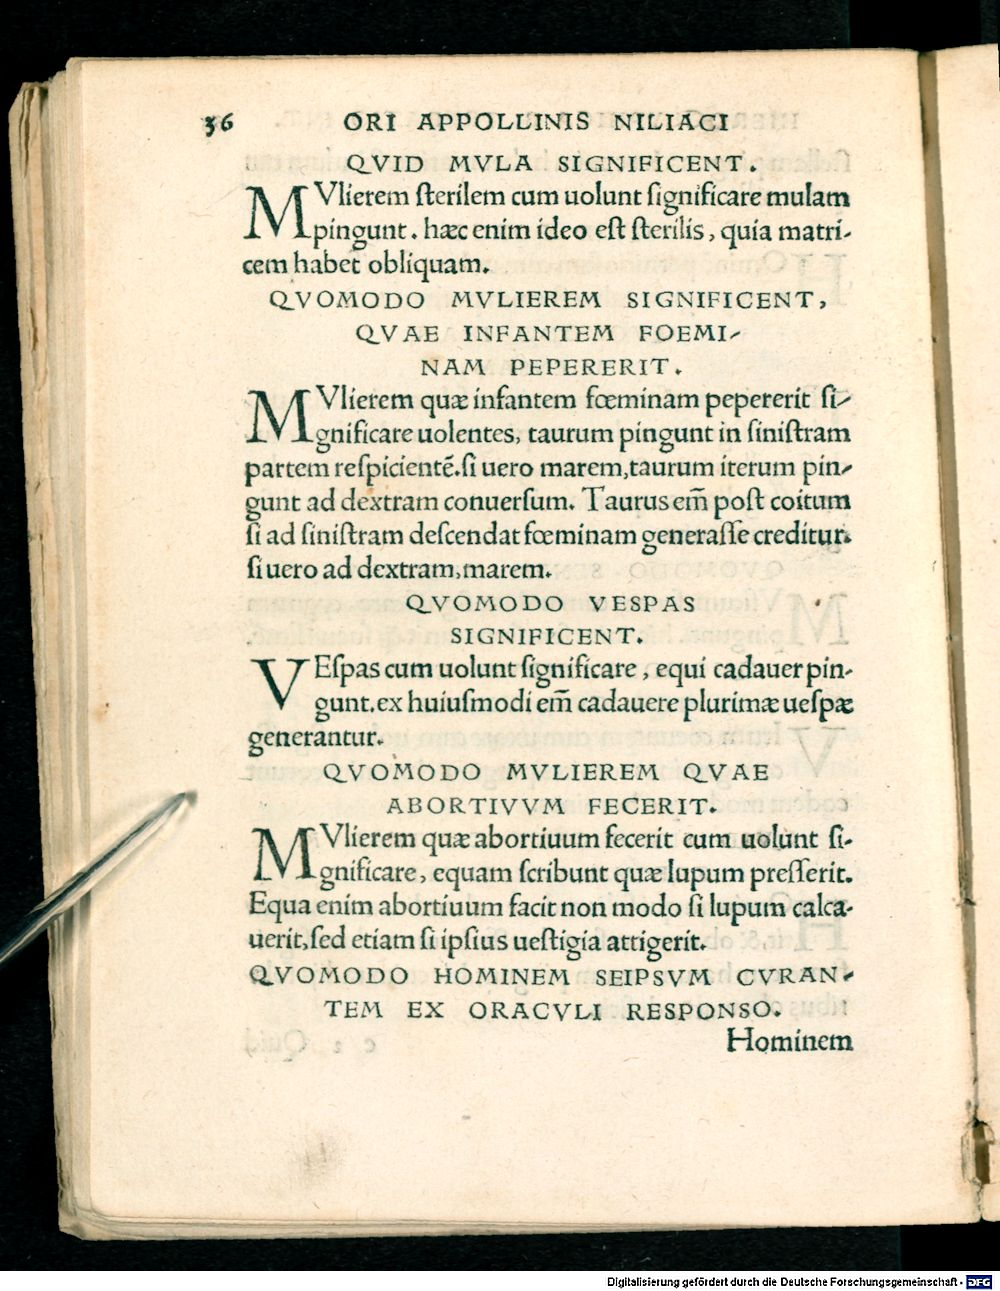 36 ORI APPOLLINIS NILIACI
QVID MVLA SIGNIFICENT.
MVlierem ſterilem cum uolunt ſignificare mulam
pingunt. hæc enim ideo eſt ſterilis, quia matri-
cem habet obliquam.
QVOMODO MVLIEREM SIGNIFICENT,
QVAE INFANTEM FOEMI-
NAM PEPERERIT.
MVlierem quæ infantem fœminam pepererit ſi-
gnificare uolentes, taurum pingunt in ſiniſtram
partem reſpicientē. ſi uero marem, taurum iterum pin-
gunt ad dextram conuerſum. Taurus em̃ poſt coitum
ſi ad ſiniſtram deſcendat fœminam generaſſe creditur.
ſi uero ad dextram, marem.
QVOMODO VESPAS
SIGNIFICENT.
VEſpas cum uolunt ſignificare, equi cadauer pin-
gunt. ex huiuſmodi em̃ cadauere plurimæ ueſpæ
generantur.
QVOMODO MVLIEREM QVAE
ABORTIVVM FECERIT.
MVlierem quæ abortiuum fecerit cum uolunt ſi-
gnificare, equam ſcribunt quæ lupum preſſerit.
Equa enim abortiuum facit non modo ſi lupum calca-
uerit, ſed etiam ſi ipſius ueſtigia attigerit.
QVOMODO HOMINEM SEIPSVM CVRAN-
TEM EX ORACVLI RESPONSO.
Hominem
Digitalisierung gefördert durch die Deutsche Forschungsgemeinschaft - DFG